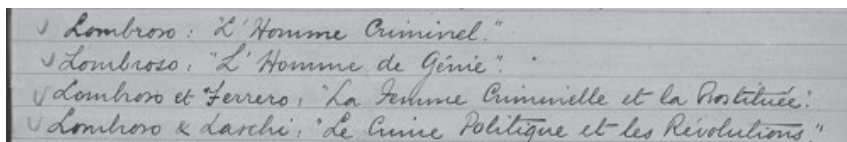 √ Lombroso: "L'Homme Criminel."
√ Lombroso: "L'Homme de Génie".
√ Lombroso et Ferrero: "La Femme Criminelle et la Prostituée".
√ Lombroso & Laschi: "Le Crime Politique et les Révolutions"